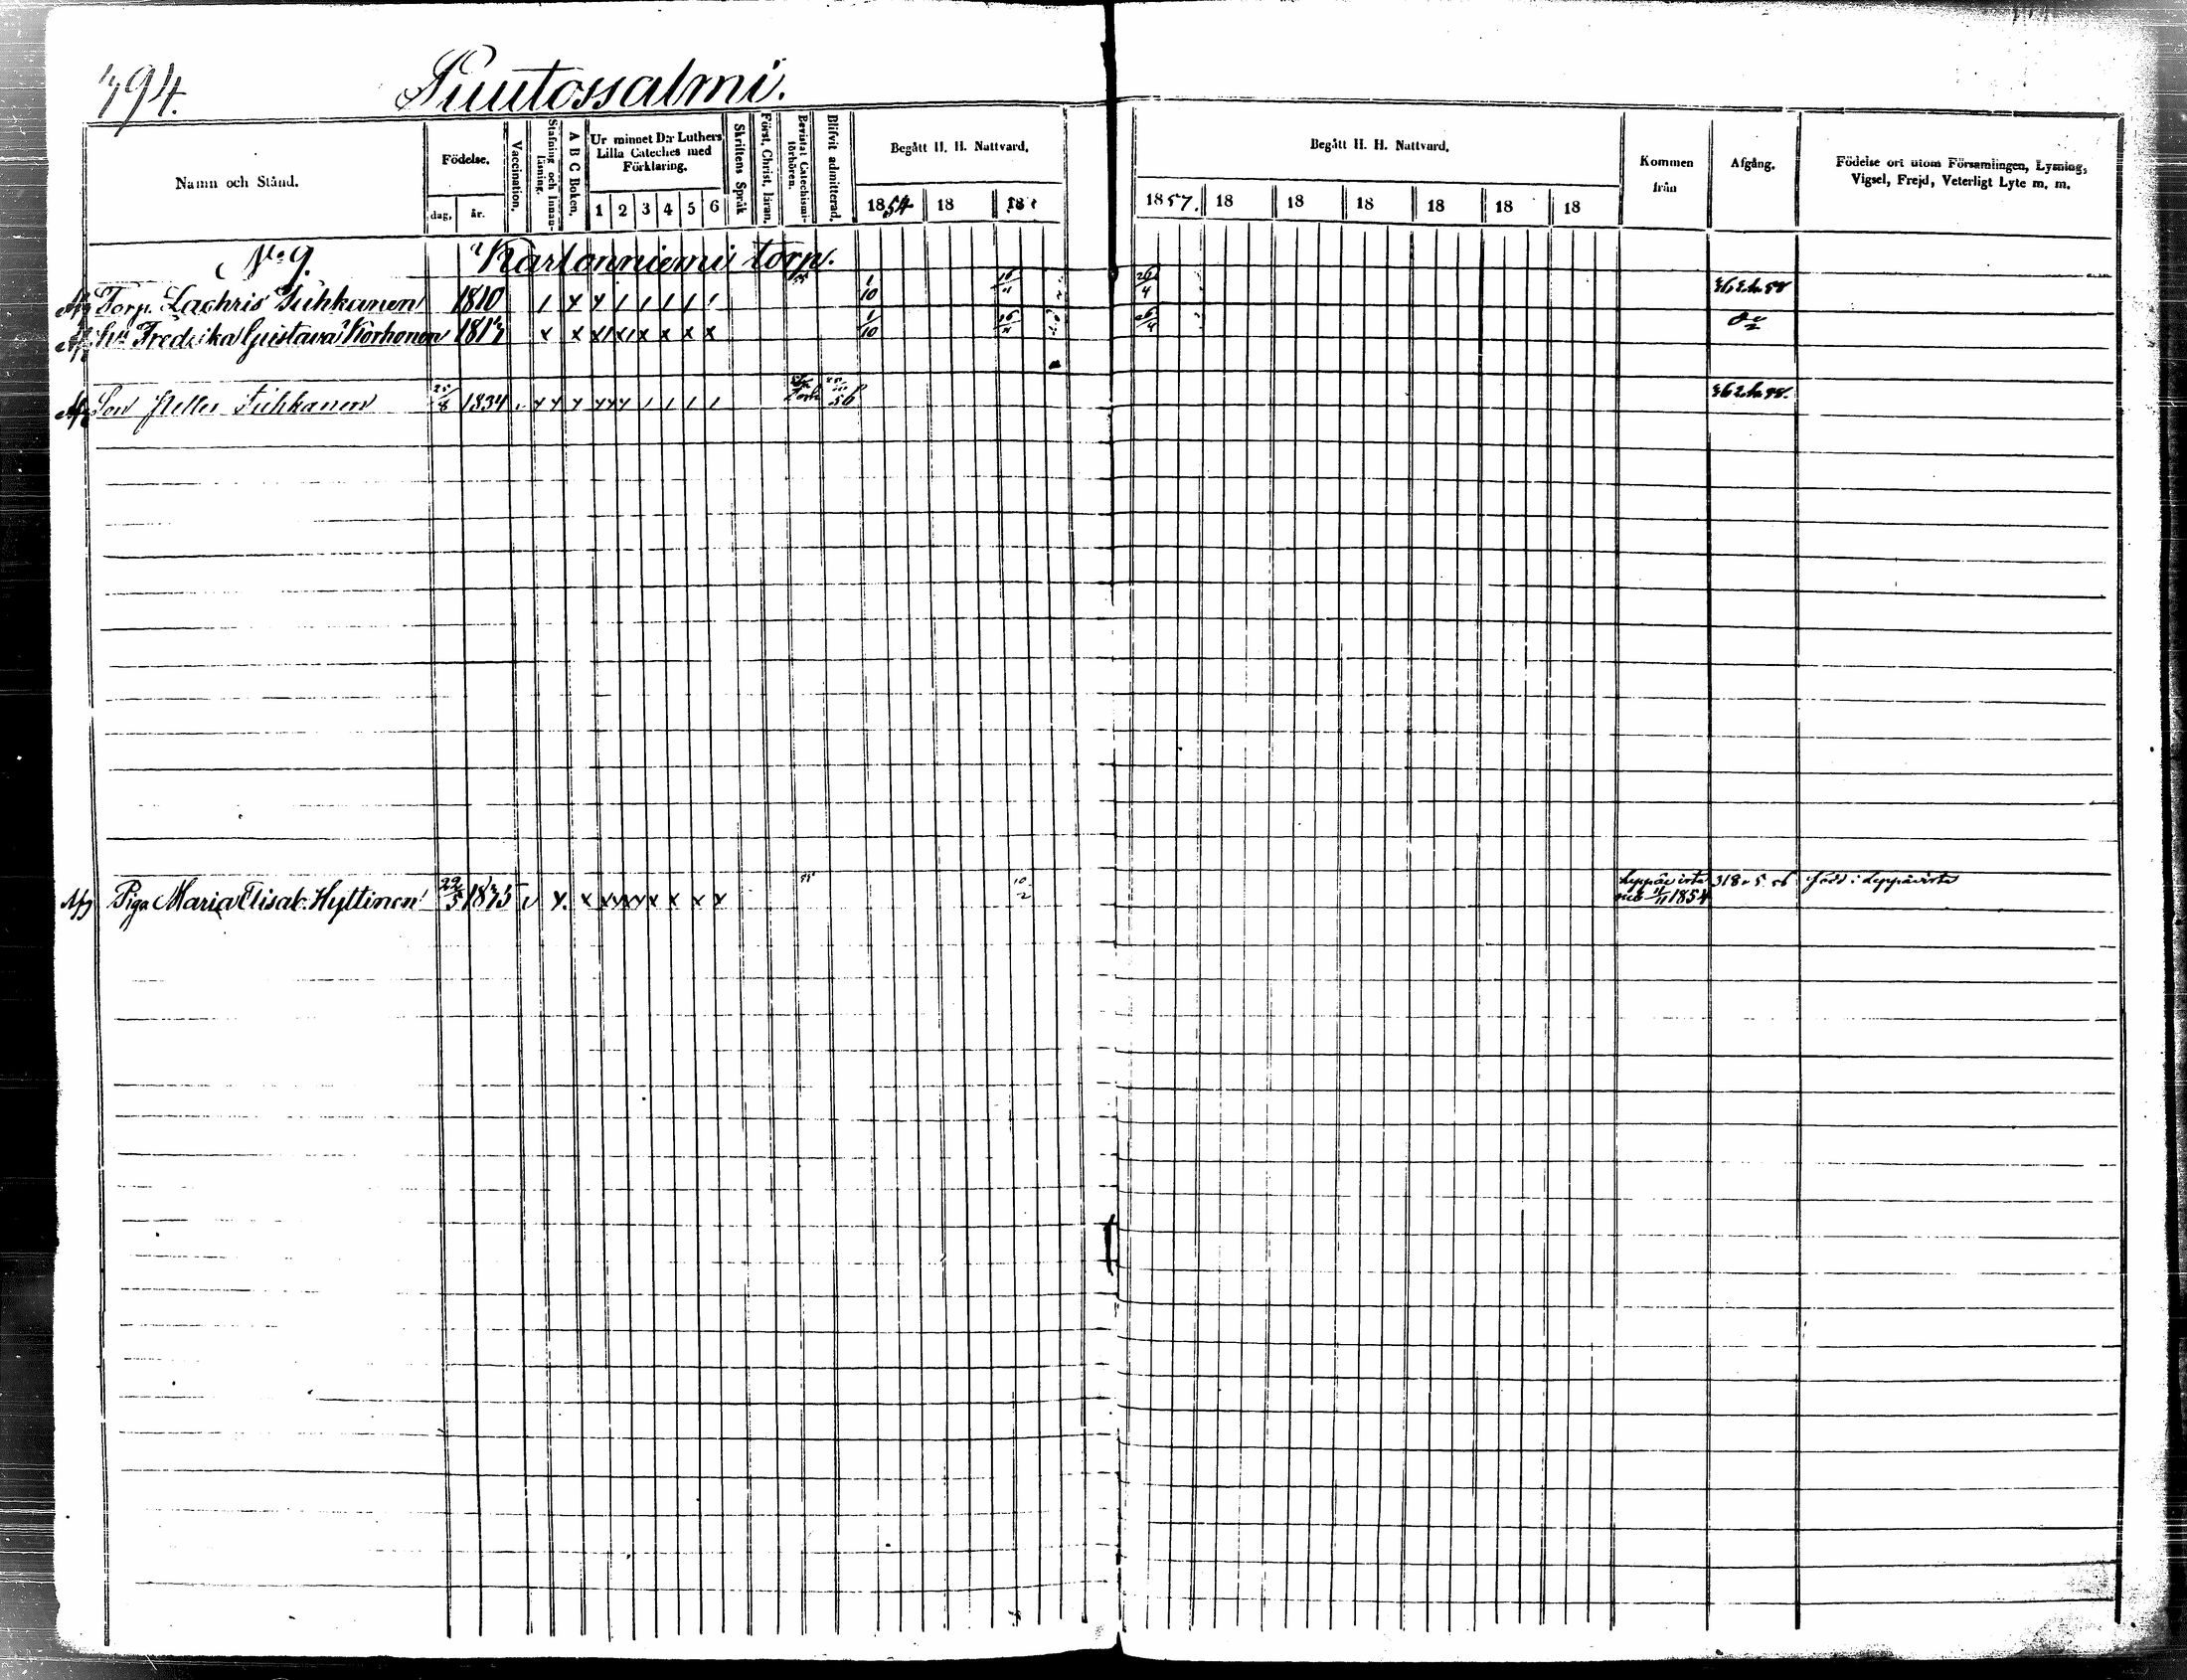 394.
Puutossalmi.
Namn och Stånd.
Födelse.
dag.
år.
Vaccination.
Stafning och Innan-
läsning.
A B C Boken.
Ur minnet D:r Luthers
Lilla Cateches med
Förklaring.
1 2 3 4 5 6
Skriftens Språk
Först. Christ. läran.
Bevistat Catechismi-
förhören.
Blifvit admitterad.
Begått H. H. Nattvard.
1854 18 18
Begått H. H. Nattvard.
1857. 18 18 18 18 18 18
Kommen
från
Afgång.
Födelse ort utom Församlingen, Lysning,
Vigsel, Frejd, Veterligt Lyte m. m.
No 9. Kartonniemi torp.
Torp. Zachris Tuhkanen 1810 1/10 26/4
Hu Fredrika Gustava Korhonen 1/10 26/4
Son Petter Tuhkanen 25/8 1834 56
Piga Maria Elisab. Hyttinen 22/5 1835 55 10/2 Leppävirta 1854 318 Född i Leppävirta